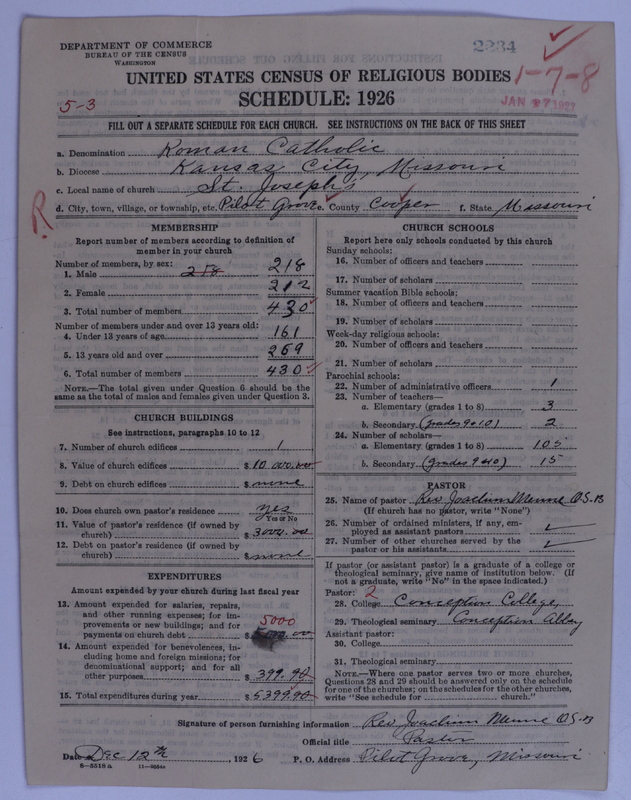 DEPARTMENT OF COMMERCE
BUREAU OF THE CENSUS
WASHINGTON
2234
UNITED STATES CENSUS OF RELIGIOUS BODIES
1-7-8
5-3
SCHEDULE: 1926
JAN 27 1927
FILL OUT A SEPARATE SCHEDULE FOR EACH CHURCH. SEE INSTRUCTIONS ON THE BACK OF THIS SHEET
a. Denomination Roman Catholic
b. Diocese Kansas City, Missouri
c. Local name of church St. Joseph's
d. City, town, village, or township, etc. Pilot Grove e. County Cooper f. State Missouri
R
MEMBERSHIP
Report number of members according to definition of
member in your church
Number of members, by sex:
1. Male 218 218
2. Female 212
3. Total number of members 430
Number of members under and over 13 years old:
4. Under 13 years of age 161
5. 13 years old and over 269
6. Total number of members 430
NOTE.—The total given under Question 6 should be
same as the total of males and females given under Question 3.
CHURCH BUILDINGS
See instructions, paragraphs 10 to 12
7. Number of church edifices 1
8. Value of church edifices $ 10.000.00
9. Debt on church edifices $ none
10. Does church own pastor's residence? yes
Yes or No
11. Value of pastor's residence (if owned by
church) $ 3000.00
12. Debt on pastor's residence (if owned by
church) $ none
EXPENDITURES
Amount expended by your church during last fiscal year
13. Amount expended for salaries, repairs,
and other running expenses; for im-
provements or new buildings; and for
payments on church debt $ 5000
14. Amount expended for benevolences, in-
cluding home and foreign missions; for
denominational support; and for all
other purposes $ 399.90
15. Total expenditures during year $ 5399.90
CHURCH SCHOOLS
Report here only schools conducted by this church
Sunday schools:
16. Number of officers and teachers
17. Number of scholars
Summer vacation Bible schools:
18. Number of officers and teachers
19. Number of scholars
Week-day religious schools:
20. Number of officers and teachers
21. Number of scholars
Parochial schools:
22. Number of administrative officers 1
23. Number of teachers—
a. Elementary (grades 1 to 8) 3
b. Secondary (grades 9 & 10) 2
24. Number of scholars—
a. Elementary (grades 1 to 8) 105
b. Secondary (grades 9 & 10) 15
PASTOR
25. Name of pastor Rev. Joachim Menne O.S.B
(If church has no pastor, write "None")
26. Number of ordained ministers, if any, em-
ployed as assistant pastors
27. Number of other churches served by the
pastor or his assistants
If pastor (or assistant pastor) is a graduate of a college or
theological seminary, give name of institution below. (If
not a graduate, write "No" in the space indicated.)
Pastor: 2
28. College Conception College,
29. Theological seminary Conception Abbey
Assistant pastor:
30. College
31. Theological seminary
NOTE.—Where one pastor serves two or more churches,
Questions 28 and 29 should be answered only on the schedule
for one of the churches; on the schedules for the other churches,
write "See schedule for church."
Signature of person furnishing information Rev. Joachim Menne O.S.B
Official title Pastor
Date Dec 12th, 1926 P. O. Address Pilot Grove, Missouri
8-5518 a